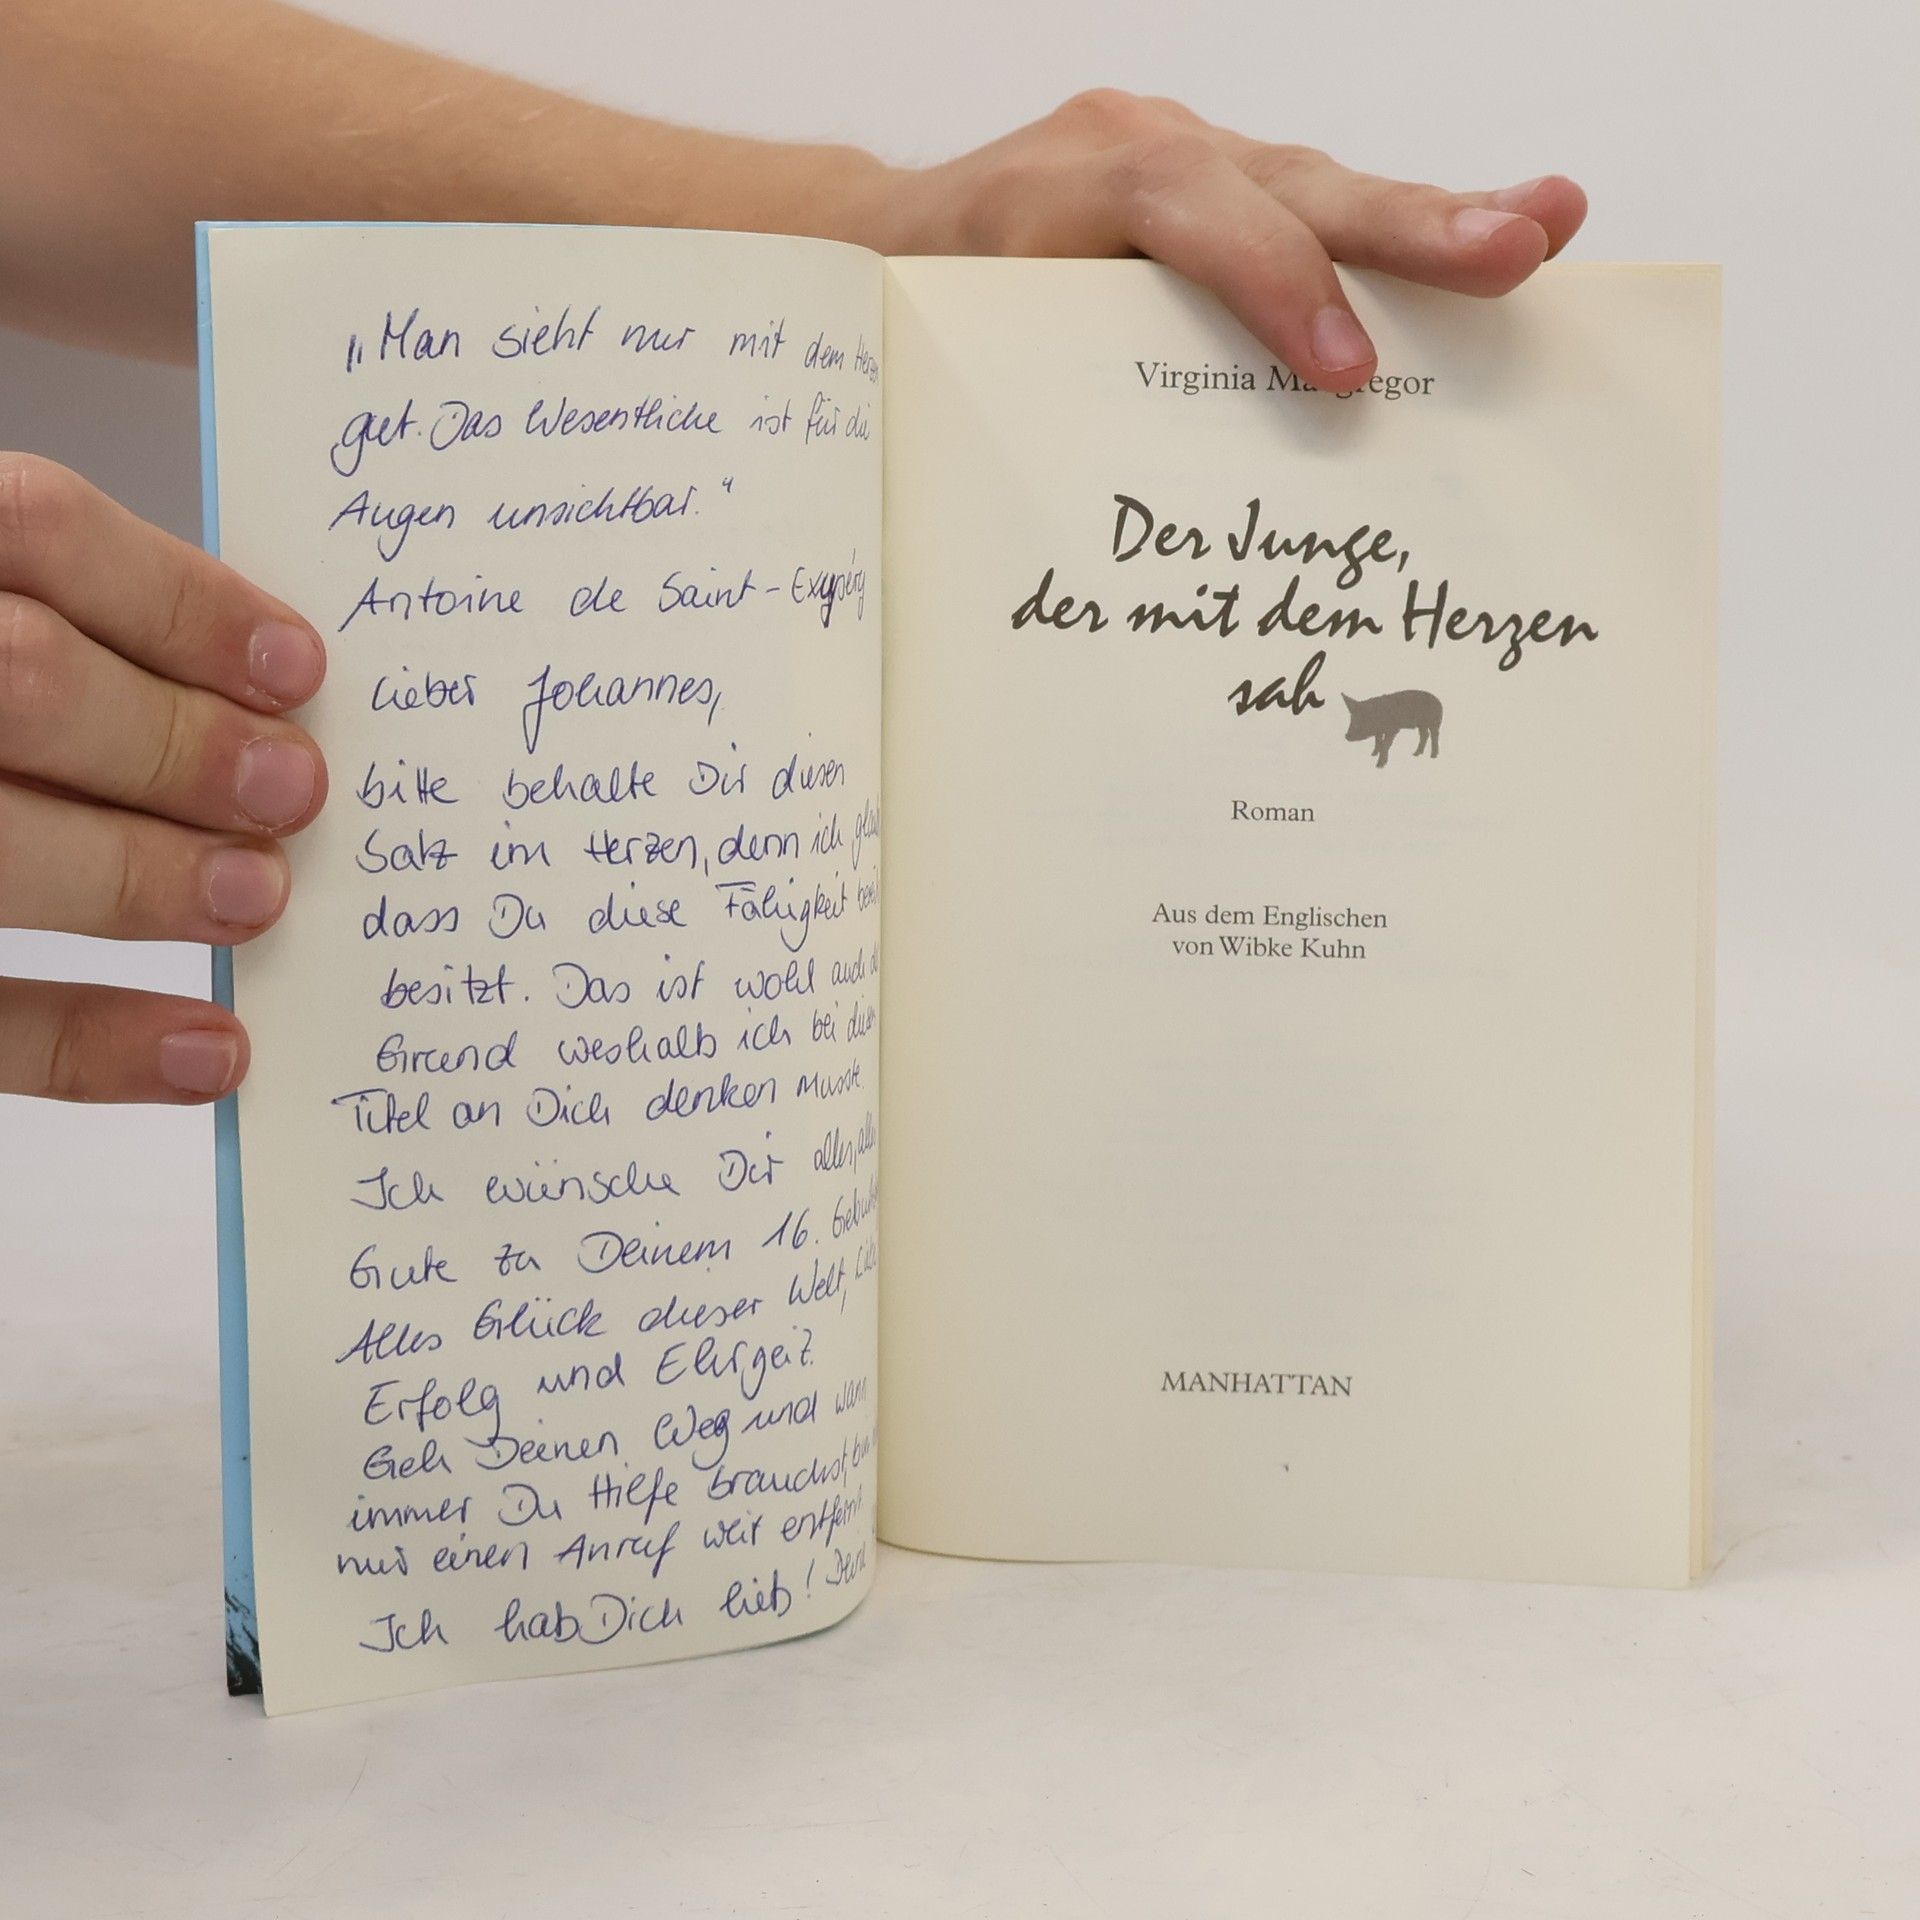 „Man sieht nur mit dem Herzen
gut. Das Wesentliche ist für die
Augen unsichtbar.“
Antoine de Saint-Exupéry
Lieber Johannes,
bitte behalte Dir diesen
Satz im Herzen, denn ich
dass Du diese Fähigkeit
besitzt. Das ist wohl auch
Grund weshalb ich bei diesem
Titel an Dich denken musste.
Ich wünsche Dir alles,
Gute zu Deinem 16.
Alles Glück dieser Welt,
Erfolg und Ehrgeiz.
Geh Deinen Weg und wann
immer Du Hilfe brauchst,
nur einen Anruf weit entfernt.
Ich hab Dich lieb!
Virginia Macgregor
Der Junge,
der mit dem Herzen
sah
Roman
Aus dem Englischen
von Wibke Kuhn
MANHATTAN